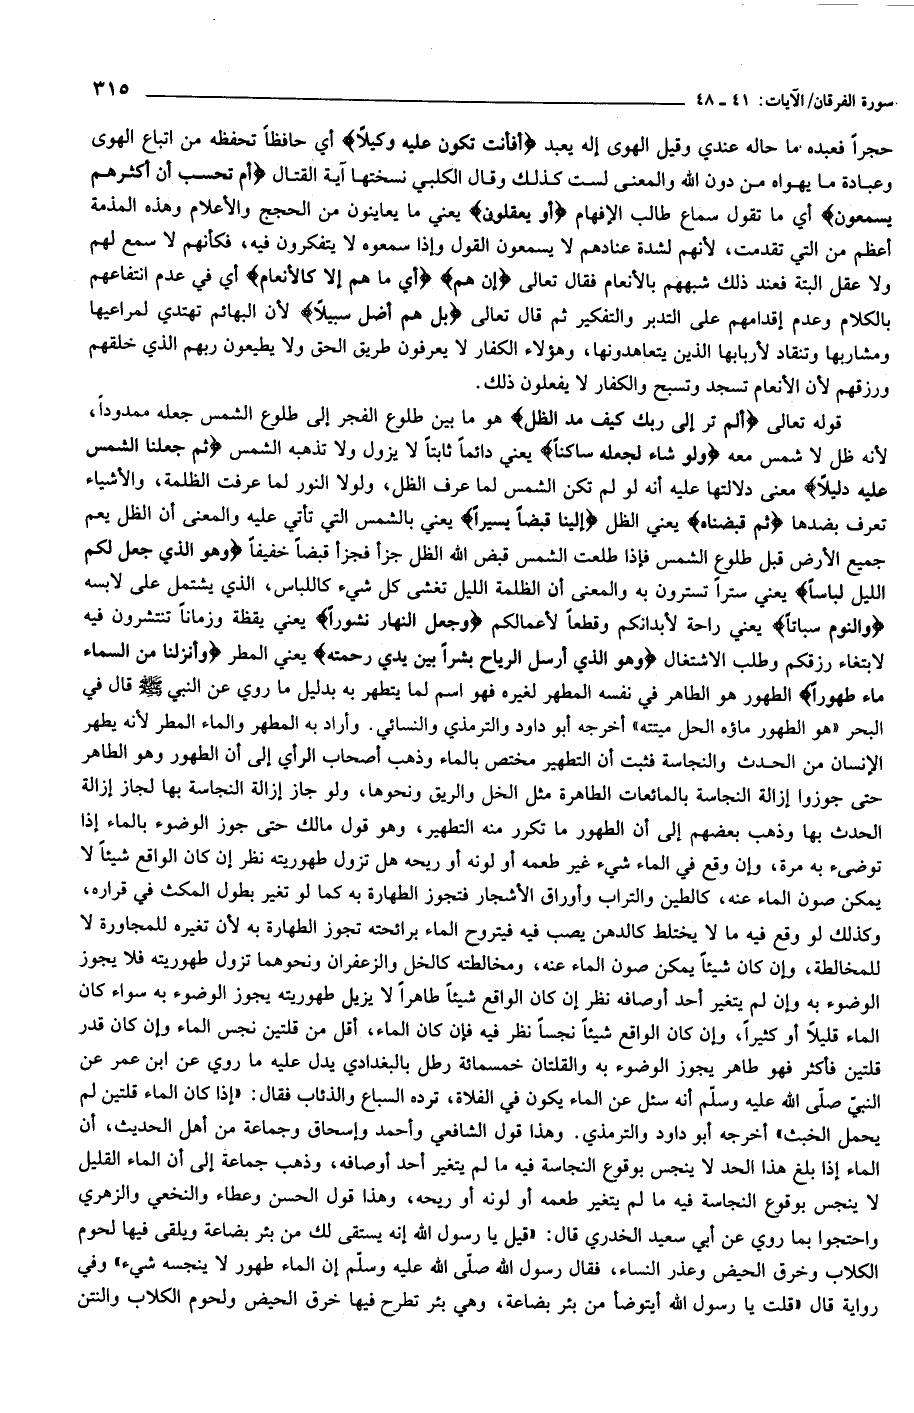 سورة الفرقان/ الآيات: ٤١ ـ ٤٨ ٣١٥
حجراً فعبده ما حاله عندي وقيل الهوى إله يعبد ﴿أفأنت تكون عليه وكيلاً﴾ أي حافظاً تحفظه من اتباع الهوى
وعبادة ما يهواه من دون الله والمعنى لست كذلك وقال الكلبي نسختها آية القتال ﴿أم تحسب أن أكثرهم
يسمعون﴾ أي ما تقول سماع طالب الإفهام ﴿أو يعقلون﴾ يعني ما يعاينون من الحجج والأعلام وهذه المذمة
أعظم من التي تقدمت، لأنهم لشدة عنادهم لا يسمعون القول وإذا سمعوه لا يتفكرون فيه، فكأنهم لا سمع لهم
ولا عقل البتة فعند ذلك شبههم بالأنعام فقال تعالى ﴿إن هم﴾ ﴿أي ما هم إلا كالأنعام﴾ أي في عدم انتفاعهم
بالكلام وعدم إقدامهم على التدبر والتفكير ثم قال تعالى ﴿بل هم أضل سبيلاً﴾ لأن البهائم تهتدي لمراعيها
ومشاربها وتنقاد لأربابها الذين يتعاهدونها، وهؤلاء الكفار لا يعرفون طريق الحق ولا يطيعون ربهم الذي خلقهم
ورزقهم لأن الأنعام تسجد وتسبح والكفار لا يفعلون ذلك.
قوله تعالى ﴿ألم تر إلى ربك كيف مد الظل﴾ هو ما بين طلوع الفجر إلى طلوع الشمس جعله ممدوداً،
لأنه ظل لا شمس معه ﴿ولو شاء لجعله ساكناً﴾ يعني دائماً ثابتاً لا يزول ولا تذهبه الشمس ﴿ثم جعلنا الشمس
عليه دليلاً﴾ معنى دلالتها عليه أنه لو لم تكن الشمس لما عرف الظل، ولولا النور لما عرفت الظلمة، والأشياء
تعرف بضدها ﴿ثم قبضناه﴾ يعني الظل ﴿إلينا قبضاً يسيراً﴾ يعني بالشمس التي تأتي عليه والمعنى أن الظل يعم
جميع الأرض قبل طلوع الشمس فإذا طلعت الشمس قبض الله الظل جزأ فجزأ قبضاً خفيفاً ﴿وهو الذي جعل لكم
الليل لباساً﴾ يعني ستراً تسترون به والمعنى أن الظلمة الليل تغشى كل شيء كاللباس، الذي يشتمل على لابسه
﴿والنوم سباتاً﴾ يعني راحة لأبدانكم وقطعاً لأعمالكم ﴿وجعل النهار نشوراً﴾ يعني يقظة وزماناً تنتشرون فيه
لابتغاء رزقكم وطلب الاشتغال ﴿وهو الذي أرسل الرياح بشراً بين يدي رحمته﴾ يعني المطر ﴿وأنزلنا من السماء
ماء طهوراً﴾ الطهور هو الطاهر في نفسه المطهر لغيره فهو اسم لما يتطهر به بدليل ما روي عن النبي ﷺ قال في
البحر «هو الطهور ماؤه الحل ميتته» أخرجه أبو داود والترمذي والنسائي. وأراد به المطهر والماء المطر لأنه يطهر
الإنسان من الحدث والنجاسة فثبت أن التطهير مختص بالماء وذهب أصحاب الرأي إلى أن الطهور وهو الطاهر
حتى جوزوا إزالة النجاسة بالمائعات الطاهرة مثل الخل والريق ونحوها، ولو جاز إزالة النجاسة بها لجاز إزالة
الحدث بها وذهب بعضهم إلى أن الطهور ما تكرر منه التطهير، وهو قول مالك حتى جوز الوضوء بالماء إذا
توضىء به مرة، وإن وقع في الماء شيء غير طعمه أو لونه أو ريحه هل تزول طهوريته نظر إن كان الواقع شيئاً لا
يمكن صون الماء عنه، كالطين والتراب وأوراق الأشجار فتجوز الطهارة به كما لو تغير بطول المكث في قراره،
وكذلك لو وقع فيه ما لا يختلط كالدهن يصب فيه فيتروح الماء برائحته تجوز الطهارة به لأن تغيره للمجاورة لا
للمخالطة، وإن كان شيئاً يمكن صون الماء عنه، ومخالطته كالخل والزعفران ونحوهما تزول طهوريته فلا يجوز
الوضوء به وإن لم يتغير أحد أوصافه نظر إن كان الواقع شيئاً طاهراً لا يزيل طهوريته يجوز الوضوء به سواء كان
الماء قليلاً أو كثيراً، وإن كان الواقع شيئاً نجساً نظر فيه فإن كان الماء، أقل من قلتين نجس الماء وإن كان قدر
قلتين فأكثر فهو طاهر يجوز الوضوء به والقلتان خمسمائة رطل بالبغدادي يدل عليه ما روي عن ابن عمر عن
النبيّ صلّى الله عليه وسلّم أنه سئل عن الماء يكون في الفلاة، ترده السباع والذئاب فقال: «إذا كان الماء قلتين لم
يحمل الخبث» أخرجه أبو داود والترمذي. وهذا قول الشافعي وأحمد وإسحاق وجماعة من أهل الحديث، أن
الماء إذا بلغ هذا الحد لا ينجس بوقوع النجاسة فيه ما لم يتغير أحد أوصافه، وذهب جماعة إلى أن الماء القليل
لا ينجس بوقوع النجاسة فيه ما لم يتغير طعمه أو لونه أو ريحه، وهذا قول الحسن وعطاء والنخعي والزهري
واحتجوا بما روي عن أبي سعيد الخدري قال: «قيل يا رسول الله إنه يستقى لك من بئر بضاعة ويلقى فيها لحوم
الكلاب وخرق الحيض وعذر النساء، فقال رسول الله صلّى الله عليه وسلّم إن الماء طهور لا ينجسه شيء» وفي
رواية قال «قلت يا رسول الله أيتوضأ من بئر بضاعة، وهي بئر تطرح فيها خرق الحيض ولحوم الكلاب والنتن